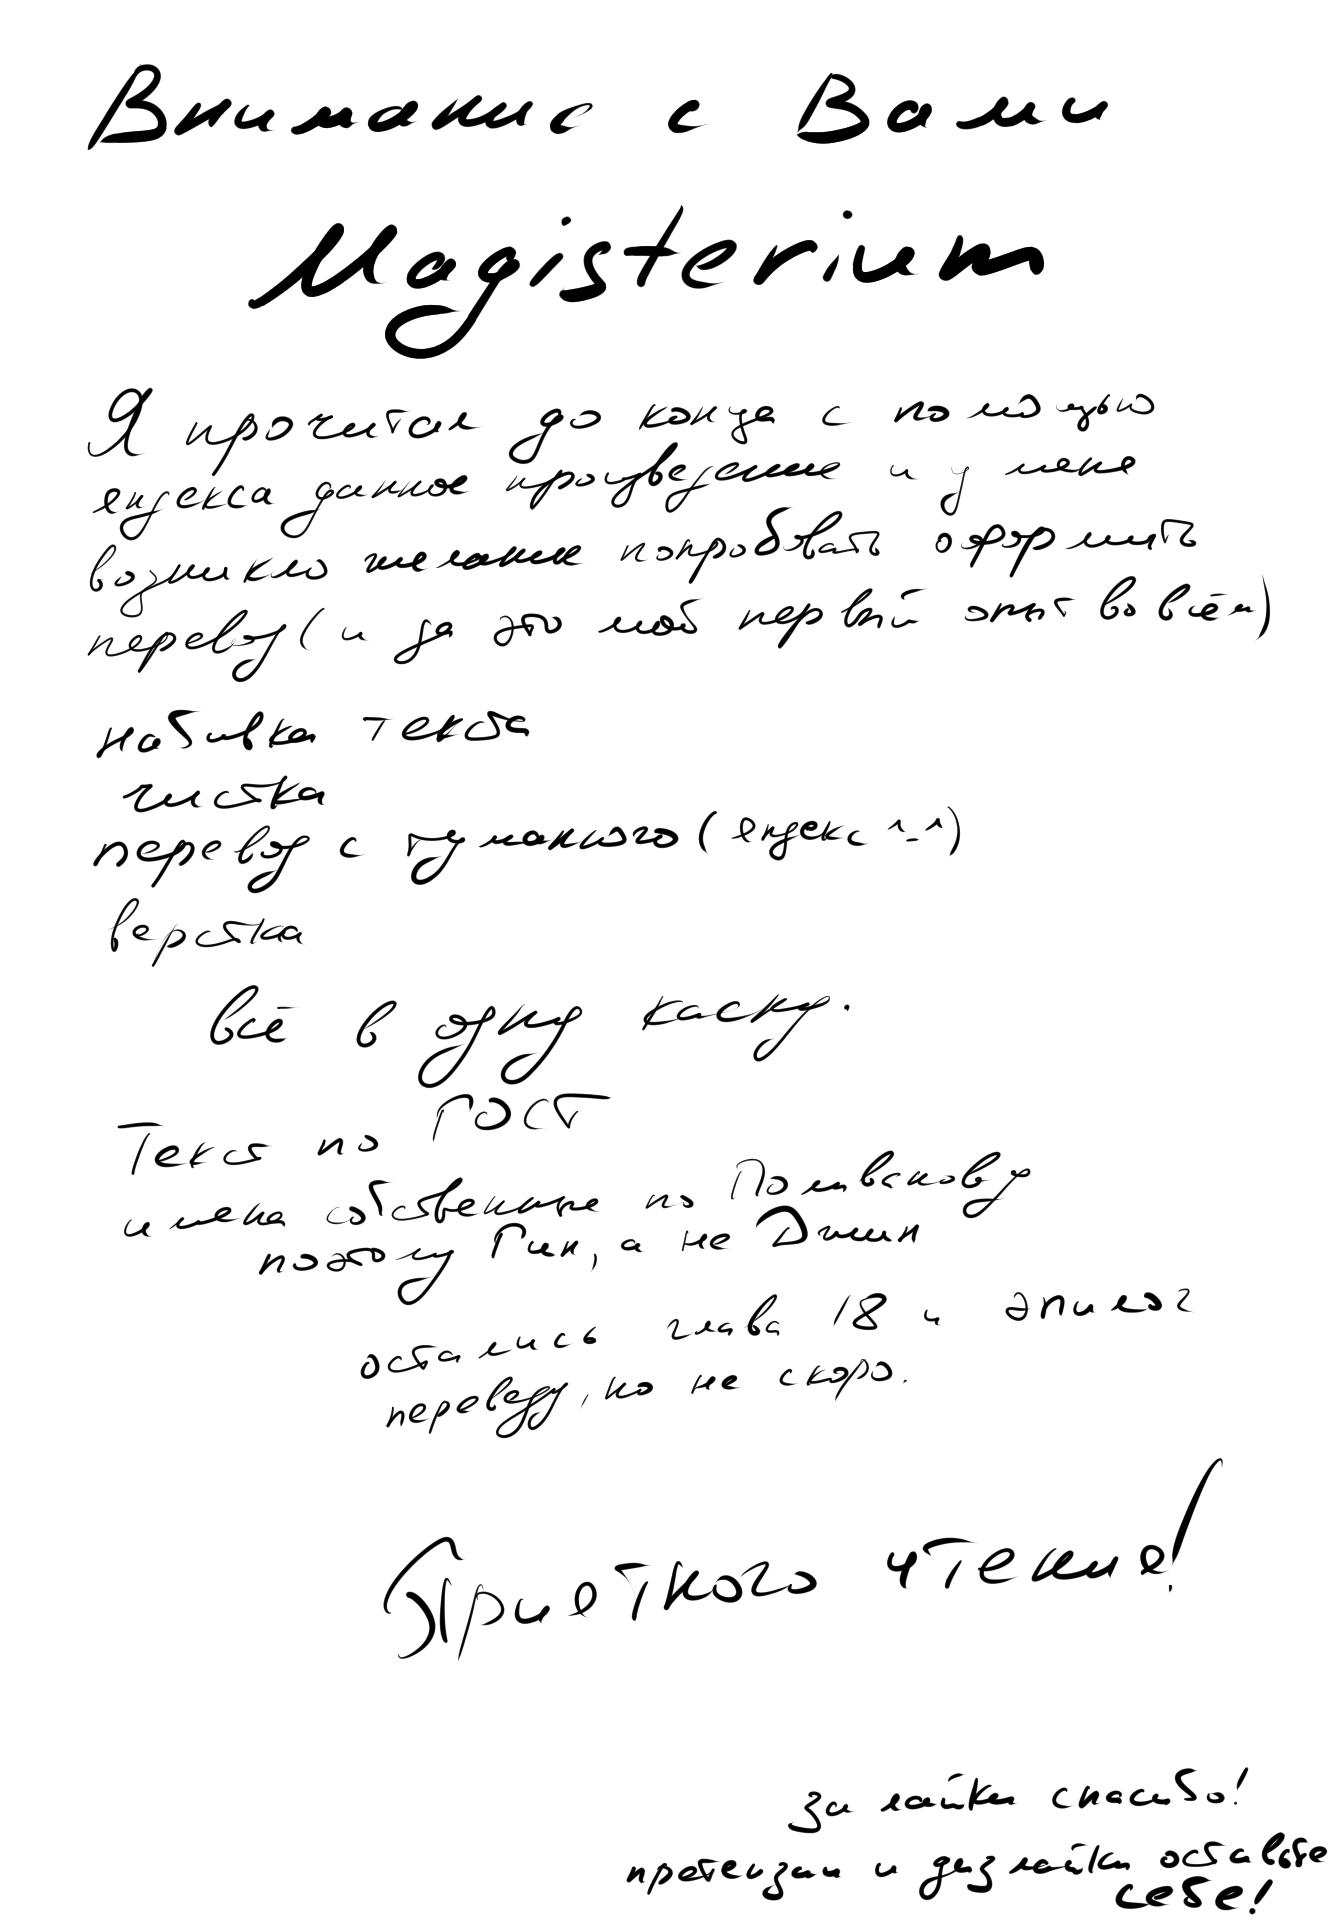 Внимание с Вами
Magisterium
Я прочитал до конца с помощью
яндекса данное произведение и у меня
возникло желание попробовать оформить
перевод (и да это мой первый опыт во всём)
набивка текста
чистка
перевод с туманного (яндекс ^_^)
верстка
всё в одну каску.
Текст по ГОСТ
имена собственные по Поливанову
поэтому Гин, а не Джин
остались глава 18 и эпилог
переведу, но не скоро.
Приятного чтения!
за лайки спасибо!
претензии и дизлайки оставьте
себе!